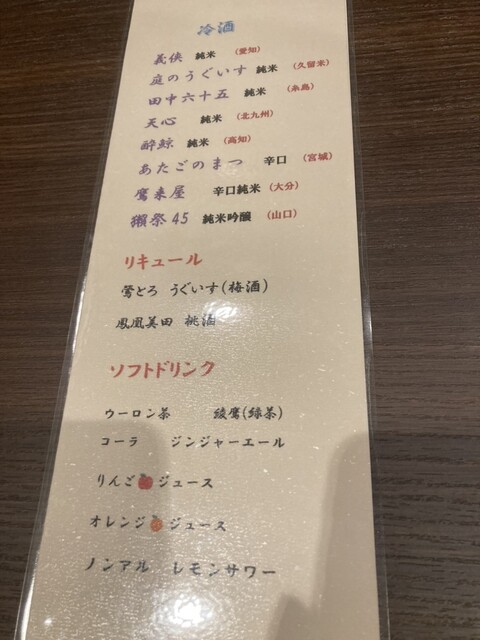 冷酒
義侠 純米 (愛知)
庭のうぐいす 純米 (久留米)
田中六十五 純米 (糸島)
天心 純米 (北九州)
酔鯨 純米 (高知)
あたごのまつ 辛口 (宮城)
鷹来屋 辛口純米 (大分)
獺祭45 純米吟醸 (山口)
リキュール
鶯とろ うぐいす(梅酒)
鳳凰美田 桃酒
ソフトドリンク
ウーロン茶 綾鷹(緑茶)
コーラ ジンジャーエール
りんごジュース
オレンジジュース
ノンアル レモンサワー